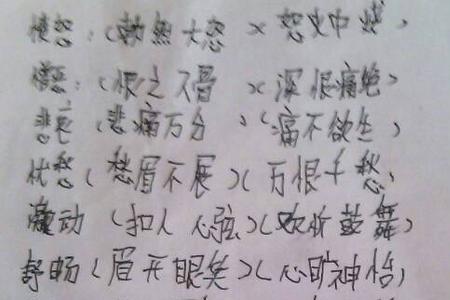 愤怒:(勃然大怒)(怒火中烧)
憎恶:(恨之入骨)(深恨痛绝)
悲哀(悲痛万分)(痛不欲生)
忧愁(愁眉不展)(万恨千愁)
激动(扣人心弦)(欢欣鼓舞)
舒畅(眉开眼笑)(心旷神怡)